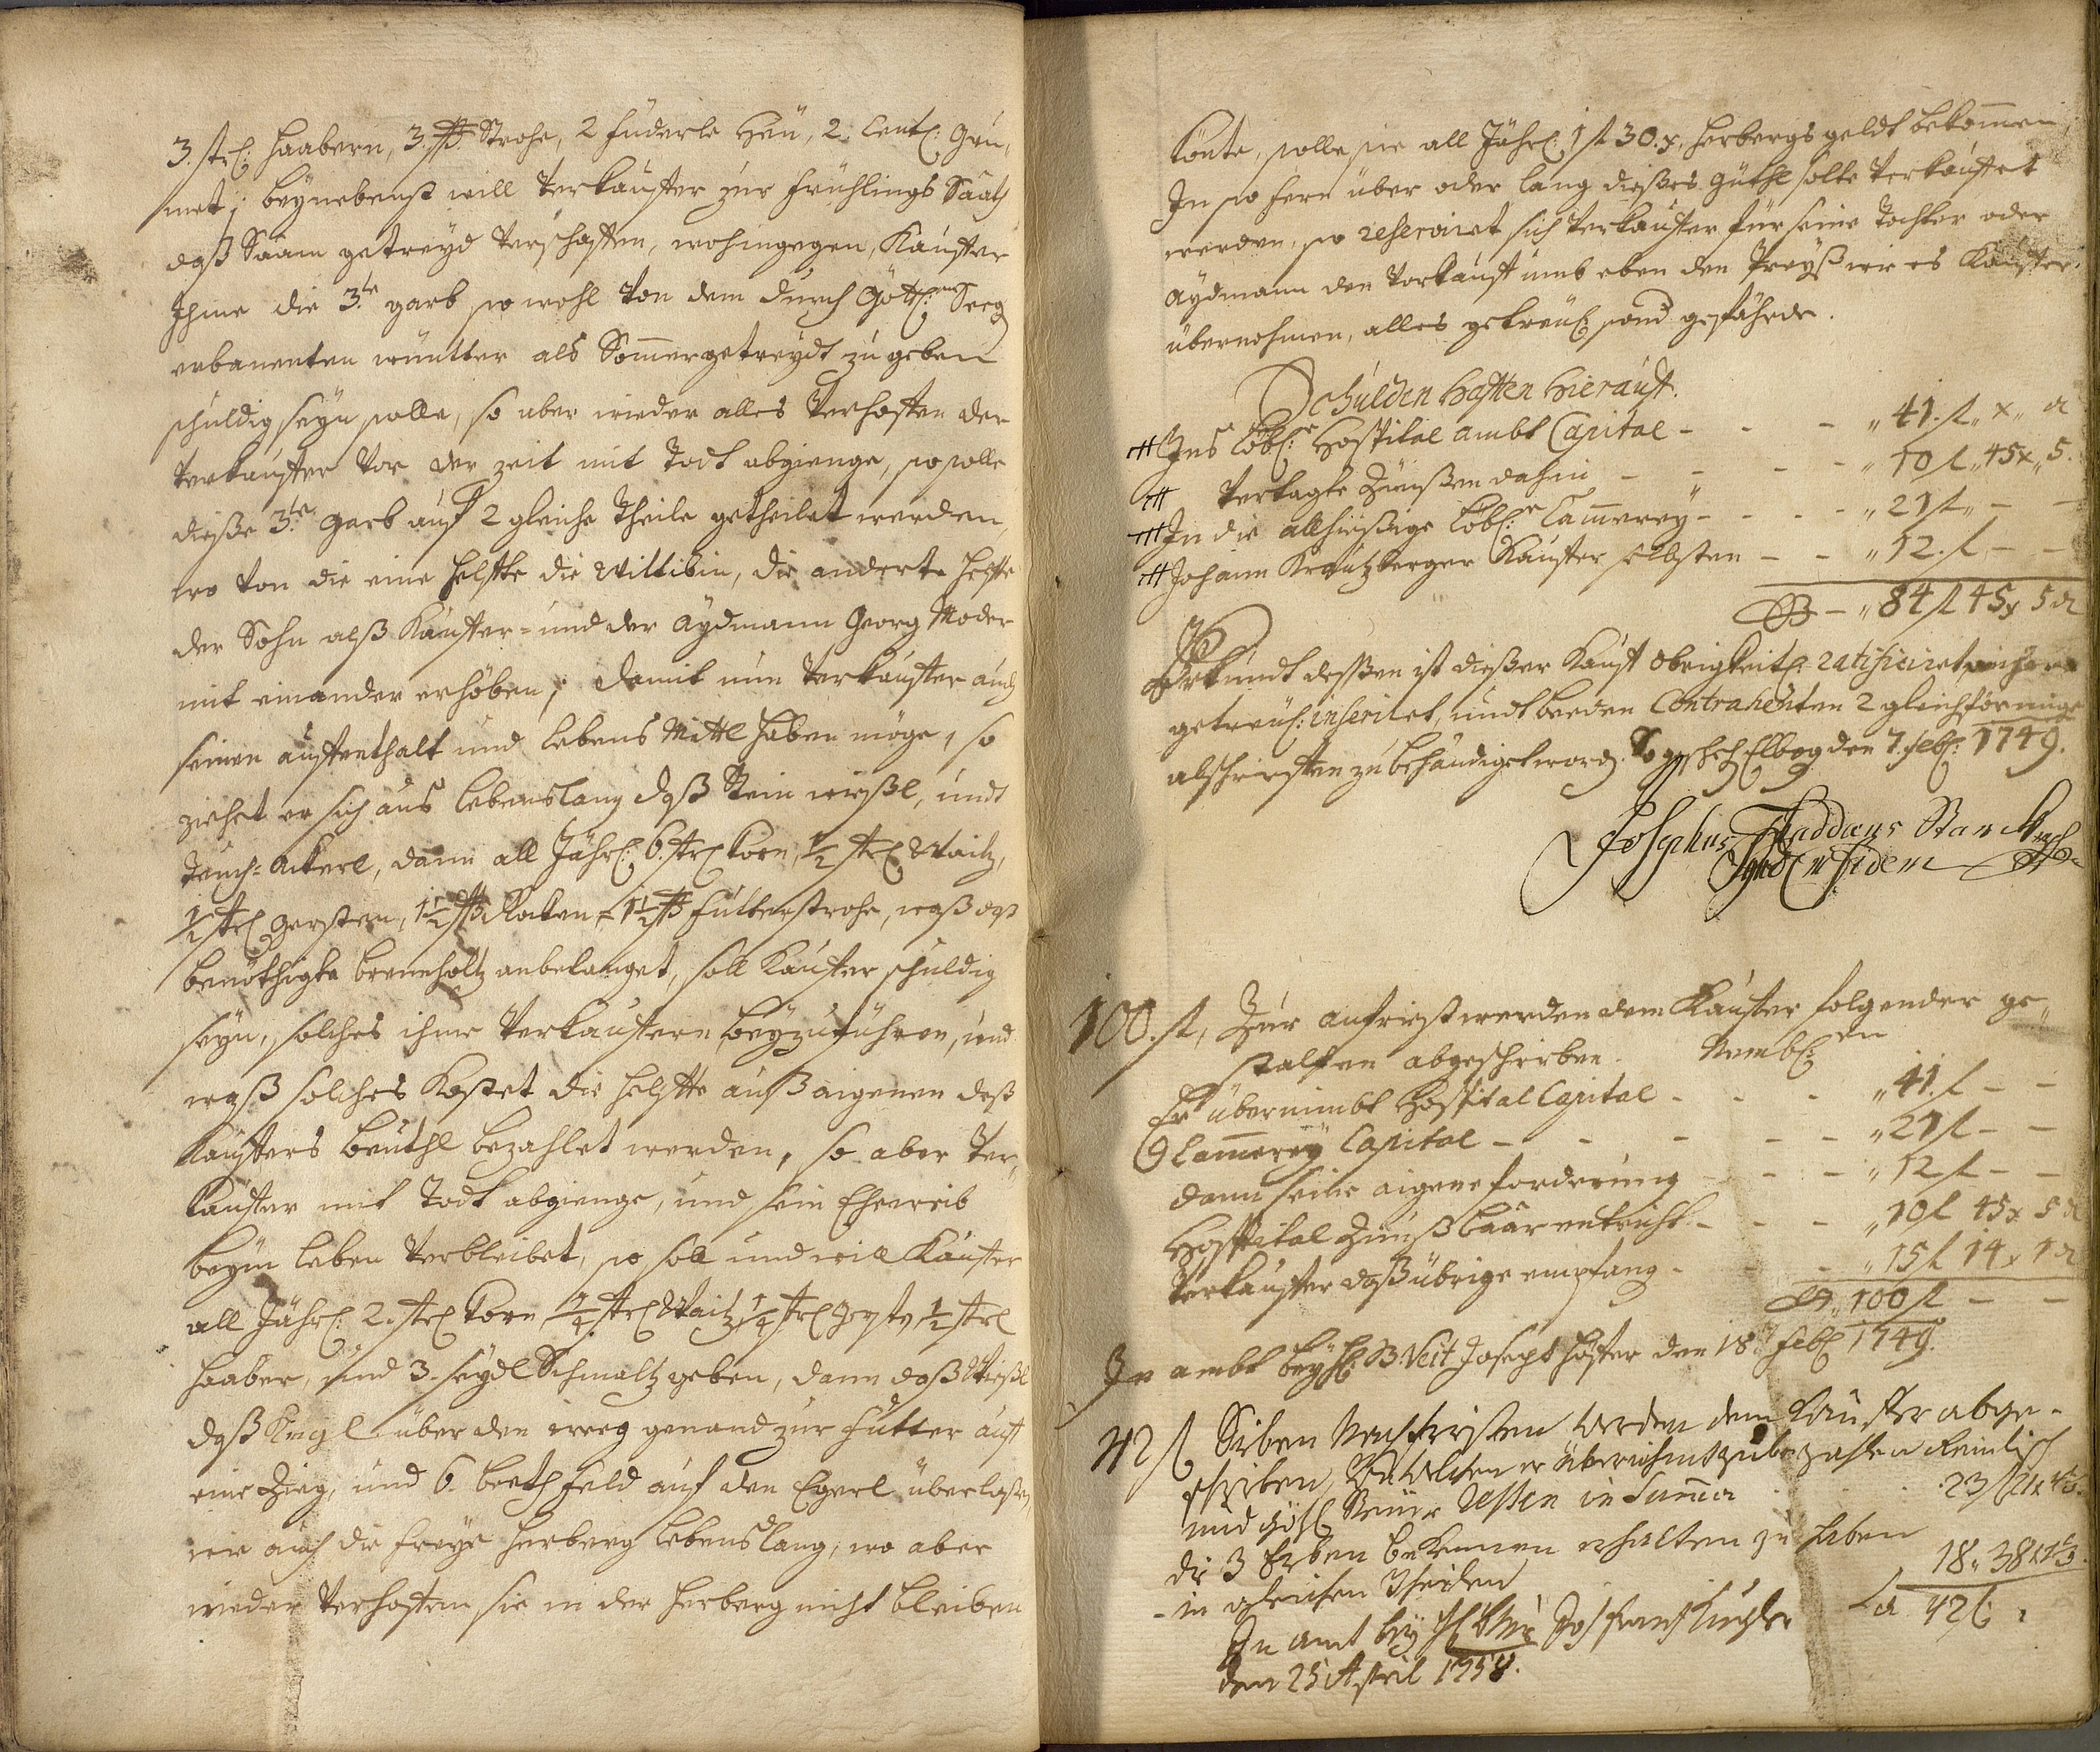 3. strl: Haabern, 3. ßß Strohe, 2 Fuderle Heu, 2. Centl: Gru-
met; beynebenst will Verkauffer zur Frühlings Saath
daß Saam getreyd verschaffen, wohingegen, Kauffer
Ihme die 3.te garb so wohl von dem durch Göttl:en Seeg
erbauenten wintter als Somergetreydt zu geben
schuldig seyn solle, so aber wieder alles Verhoffen der
Verkauffer vor der zeit mit Todt abgienge, so solle
dieße 3.te garb auf 2 gleiche Theile getheilet werden,
wo von die eine helffte die Wittibin, die anderte helffte
der Sohn alß Kauffer- und der Aydmann Georg Moder
mit einander erhöben; damit nun Verkauffer auch
seinen auffenthalt und lebens Mittl haben möge, so
ziehet er sich aus lebenslang daß Stein wießl, undt
Teuch-Ackerl, dann all Jährl: 6. strl Korn, 1/2 strl Waitz,
1/2 strl gersten, 1 1/2 ßß 1 1/2 ßß Futterstrohe, waß daß
benöthigte brennholtz anbelanget, soll Kauffer schuldig
seyn, solches ihme Verkauffern beyzuführen, und
waß solches Kostet die helffte auß aigenen deß
Kauffers beuthl bezahlet werden, so aber Ver-
kauffer mit Todt abgienge, und sein Eheweib
beym leben verbleibet, so soll und will Kauffer
all Jährl: 2. strl Korn, 1/4 strl Waitz, 1/4 strl gerstn, 1/2 strl
Haaber, und 3. seydl Schmaltz geben, dann daß Wießl
daß über den weeg genand zur Futter auf
eine Zieg, und 6. beeth feld auf den Egerl überlaßen,
wie auch die freye herberg lebenslang, wo aber
wieder Verhoffen sie in der herberg nicht bleiben
könte, solle sie all Jährl: 1 fl 30. x, herbergs geldt bekommen,
In so fern über oder lang dießes güthl solte verkauffet
werden, so reserviret sich Verkauffer für seine Tochter oder
Aydmann den Vorkauff umb eben den Preyß wie es Kauffer
übernohmen, alles getreul: sond gefährde.
Schulden hafften hierauf.
Ins löbl:e Hospital ambt Capital - - - " 41. fl " x " d
Vertagte Zinnßen dahin - - - " 10 fl " 45 x " 5.
In die allhießige löbl:e Cammerey - - - " 21 fl " - -
Johann Krautzberger Kauffer selbsten - - " 12. fl - -
- " 84 fl 45 x 5 d
Uhrkundt deßßen ist dießer Kauff obrigkeitl: ratificiret,
getreul: inseriret, undt beeden Contrahenten 2 gleichförmige
abschrifften zubehändiget word. So gescheh Elbog den 7. feb: 1749.
Josephus Thaddæus
Synd
100. fl, Zur anfrist werden dem Kauffer folgender ge-
stalten abgeschrieben. Nembl:en
Er übernimbt Hospital Capital - - - " 41. fl - -
Cammerey Capital - - - - " 21 fl - -
dann seine aigene forderung - - - " 12 fl - -
Hospital Zinnß baar entricht - - - " 10 fl 45 x 5 d
Verkauffer daß übrige empfang - - " 15 fl 14 x 1 d
" 100 fl - -
In ambt bey H: B. Veit Joseph Höffer den 18. feb: 1749.
42 fl Sieben Nachfristen werden dem Kauffer abge-
schrieben, von welchen er übernihmt zubezahlen
und Steuer Resten in Summa 23 fl 21 x
die 3 Erben bekennen erhalten zu haben
in gleichen Theilen 18 " 38 x
La 42 fl
In amt bey
den 25 April 1758.